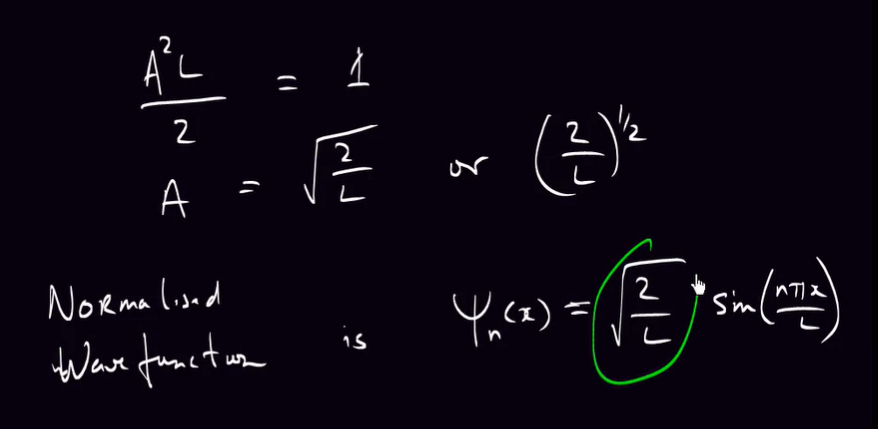 A²L/2 = 1
A = √(2/L) or (2/L)^1/2
Normalised
Wavefunction is ψₙ(x) = √(2/L) sin(nπx/L)